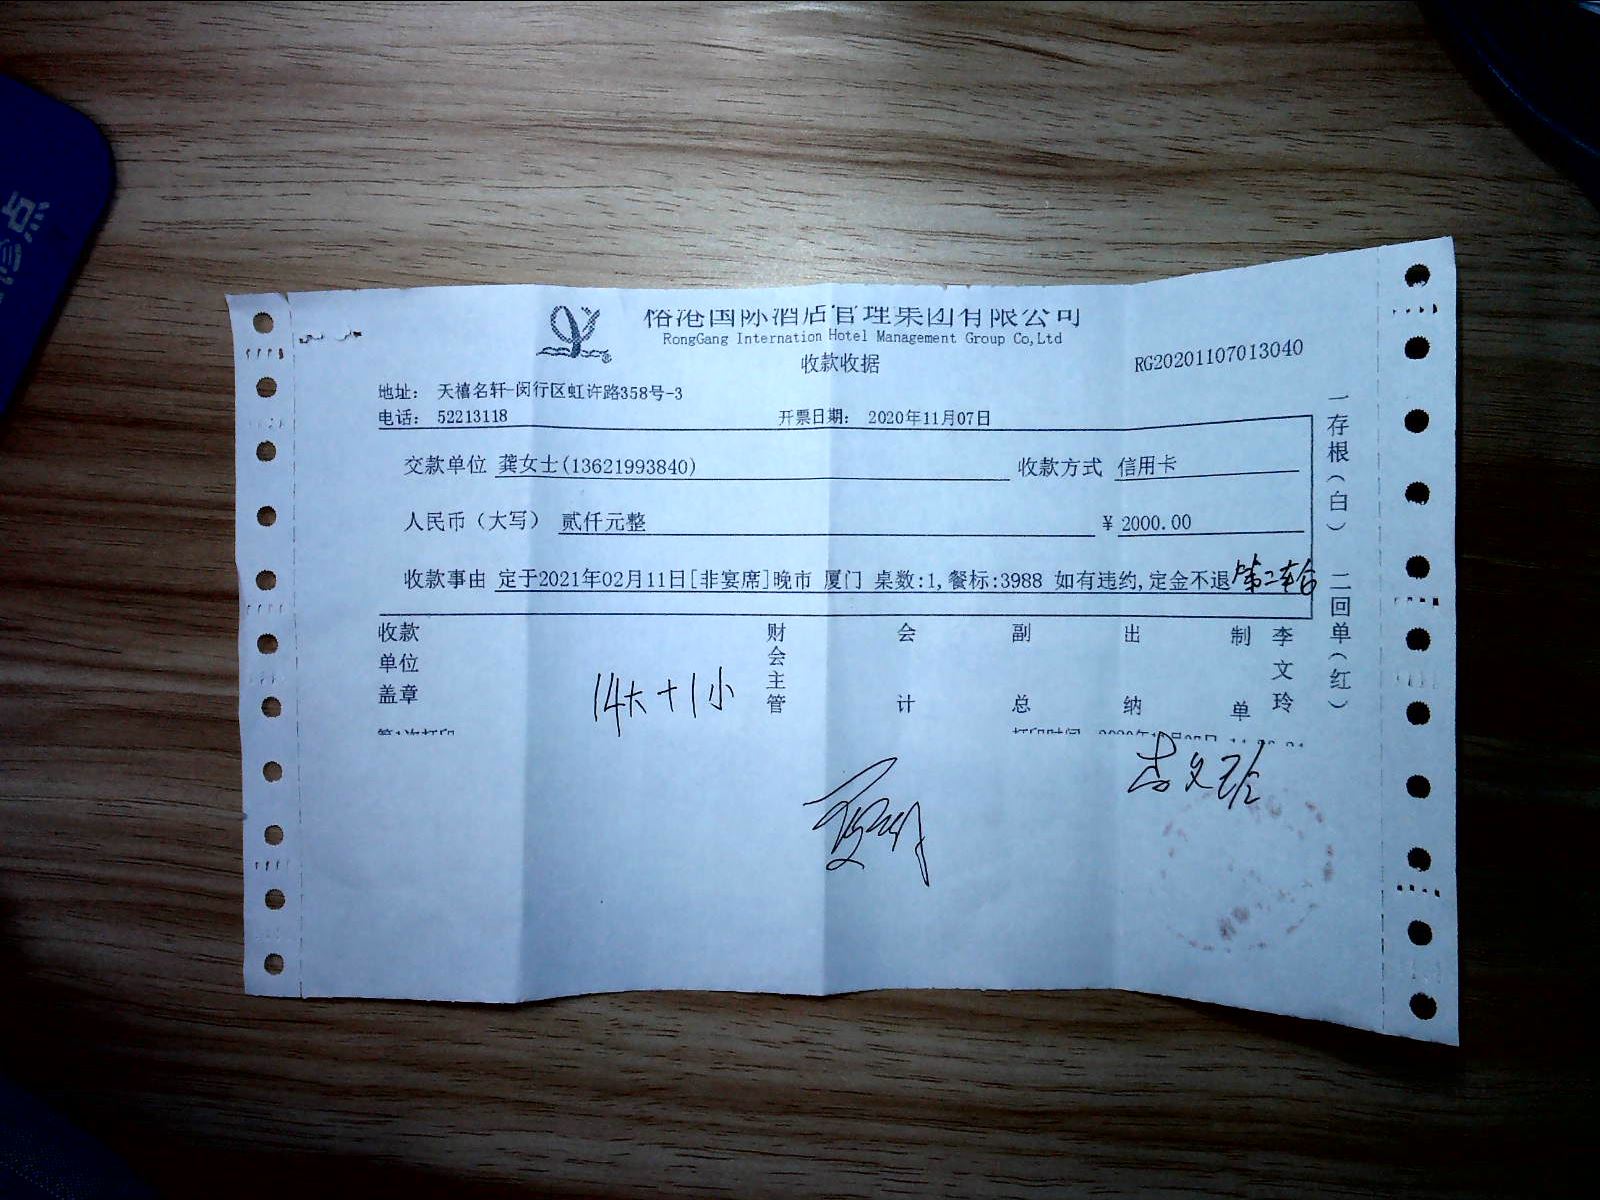 榕港国际酒店管理集团有限公司
RongGang Internation Hotel Management Group Co,Ltd
收款收据
RG20201107013040
地址: 天禧名轩-闵行区虹许路358号-3
电话: 52213118 开票日期: 2020年11月07日
交款单位 龚女士(13621993840) 收款方式 信用卡
人民币(大写) 贰仟元整 ¥ 2000.00
收款事由 定于2021年02月11日[非宴席]晚市 厦门 桌数:1,餐标:3988 如有违约,定金不退 第二车台
收款单位盖章 财会主管 会计 副总 出纳 制单 李文玲
14大+1小
第1次打印
李文玲
一存根(白) 二回单(红)